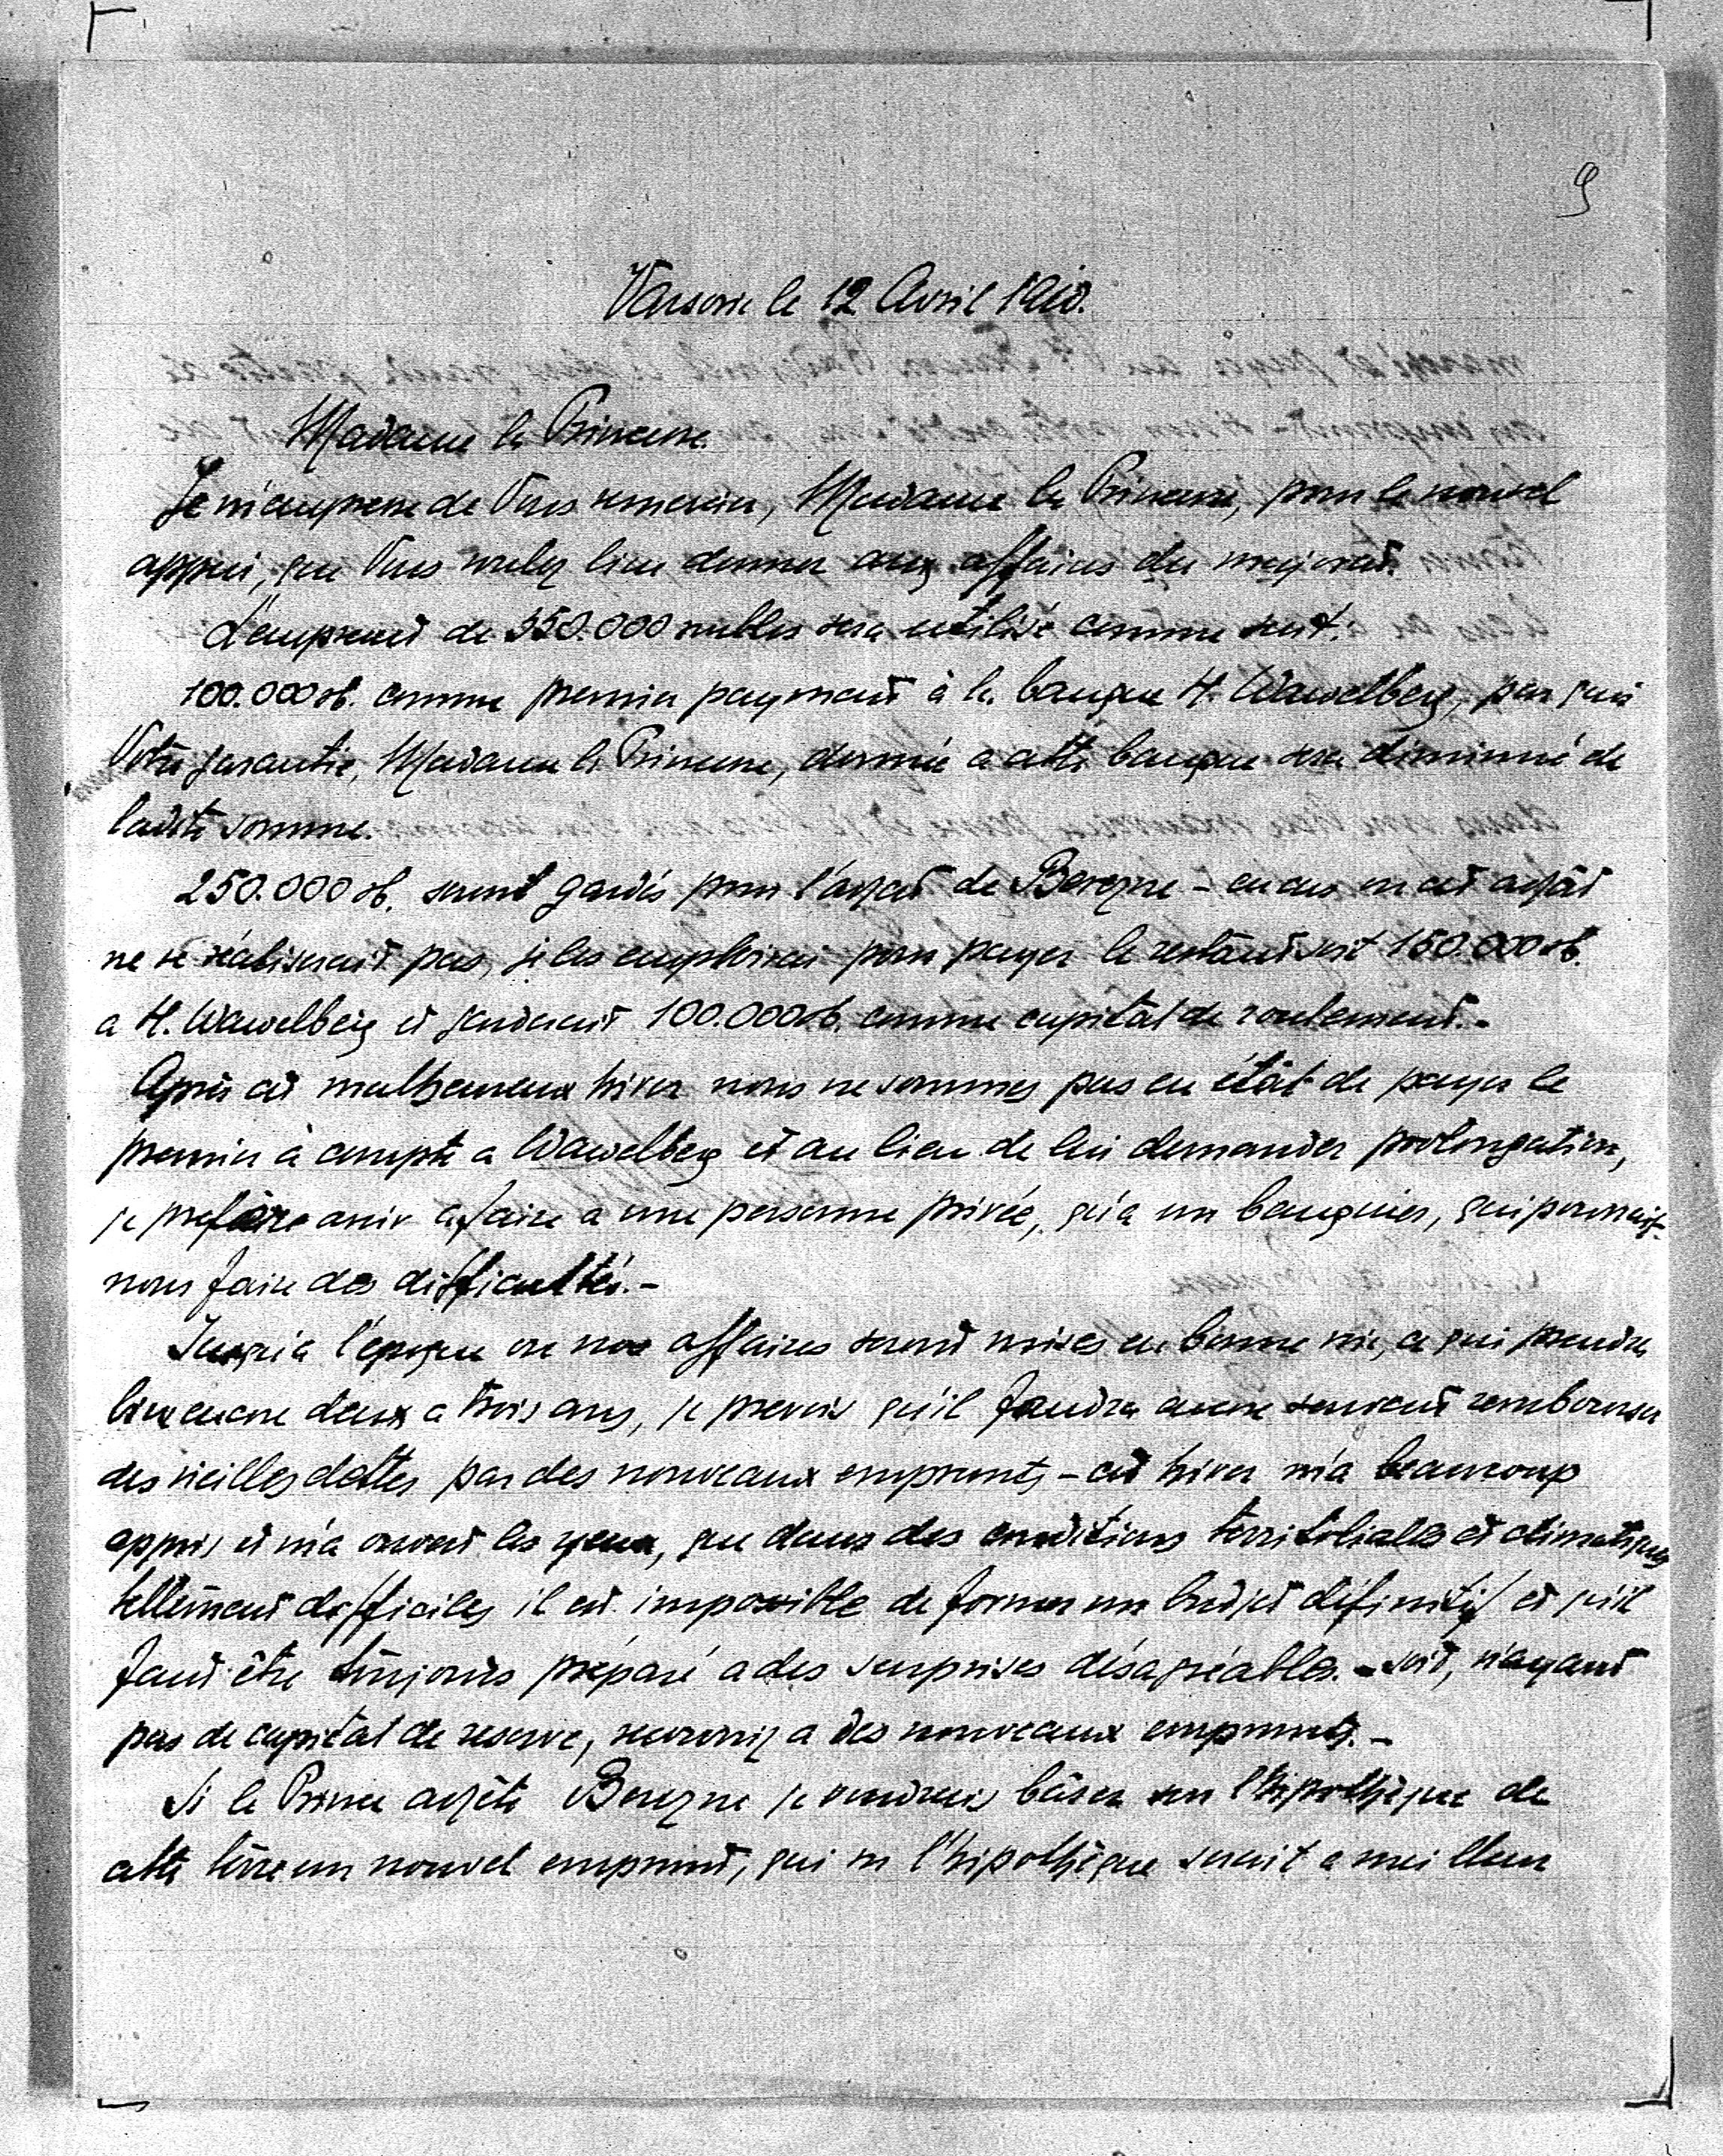 9
Varsovie le 12 Avril 1910.
Madame la Princesse.
Je m'empresse de Vous remercier, Madame la Princesse, pour le nouvel
appui, que Vous voulez bien donner aux affaires du majorat.
L'emprunt de 350.000 roubles sera utilisé comme suit:
100.000 rb. comme premier payment à la banque H. Wawelberg, par quoi
Votre garantie, Madame la Princesse, donnée a cette banque sera diminué de
ladite somme.
250.000 rb. seront gardés pour l'achat de Berezne – en cas ou cet achât
ne se réaliserait pas, je les emploirai pour payer le restant soit 150.000 rb.
a H. Wawelberg et garderait 100.000 rb. comme capitàl de roulement. -
Après cet malheureux hiver nous ne sommes pas en étât de payer le
premier à compte a Wawelberg et au lieu de lui demander prolongation,
je prefère avoir à faire a une personne privée, qu'a un banquier, qui pourrait
nous faire des difficultés. -
Jusqu'a l'époque ou nos affaires seront mises en bonne voie, ce qui prendra
bien encore deux a trois ans, je prevois qu'il faudra encore souvent rembourser
des vieilles dettes par des nouveaux emprunts – cet hiver m'a beaucoup
appris et m'a ouvert les yeux, que dans des conditions territorialles et climatiques
tellement difficiles il est impossible de former un budjet définitif et qu'il
faut être toujours préparé a des surprises désagréables. – soit, n'ayant
pas de capitàl de reserve, recourir a des nouveaux emprunts. -
Si le Prince achète Berezne je voudrais bâser sur l'hipothèque de
cette tèrre un nouvel emprunt, qui sur l'hipothèque serait a meilleur